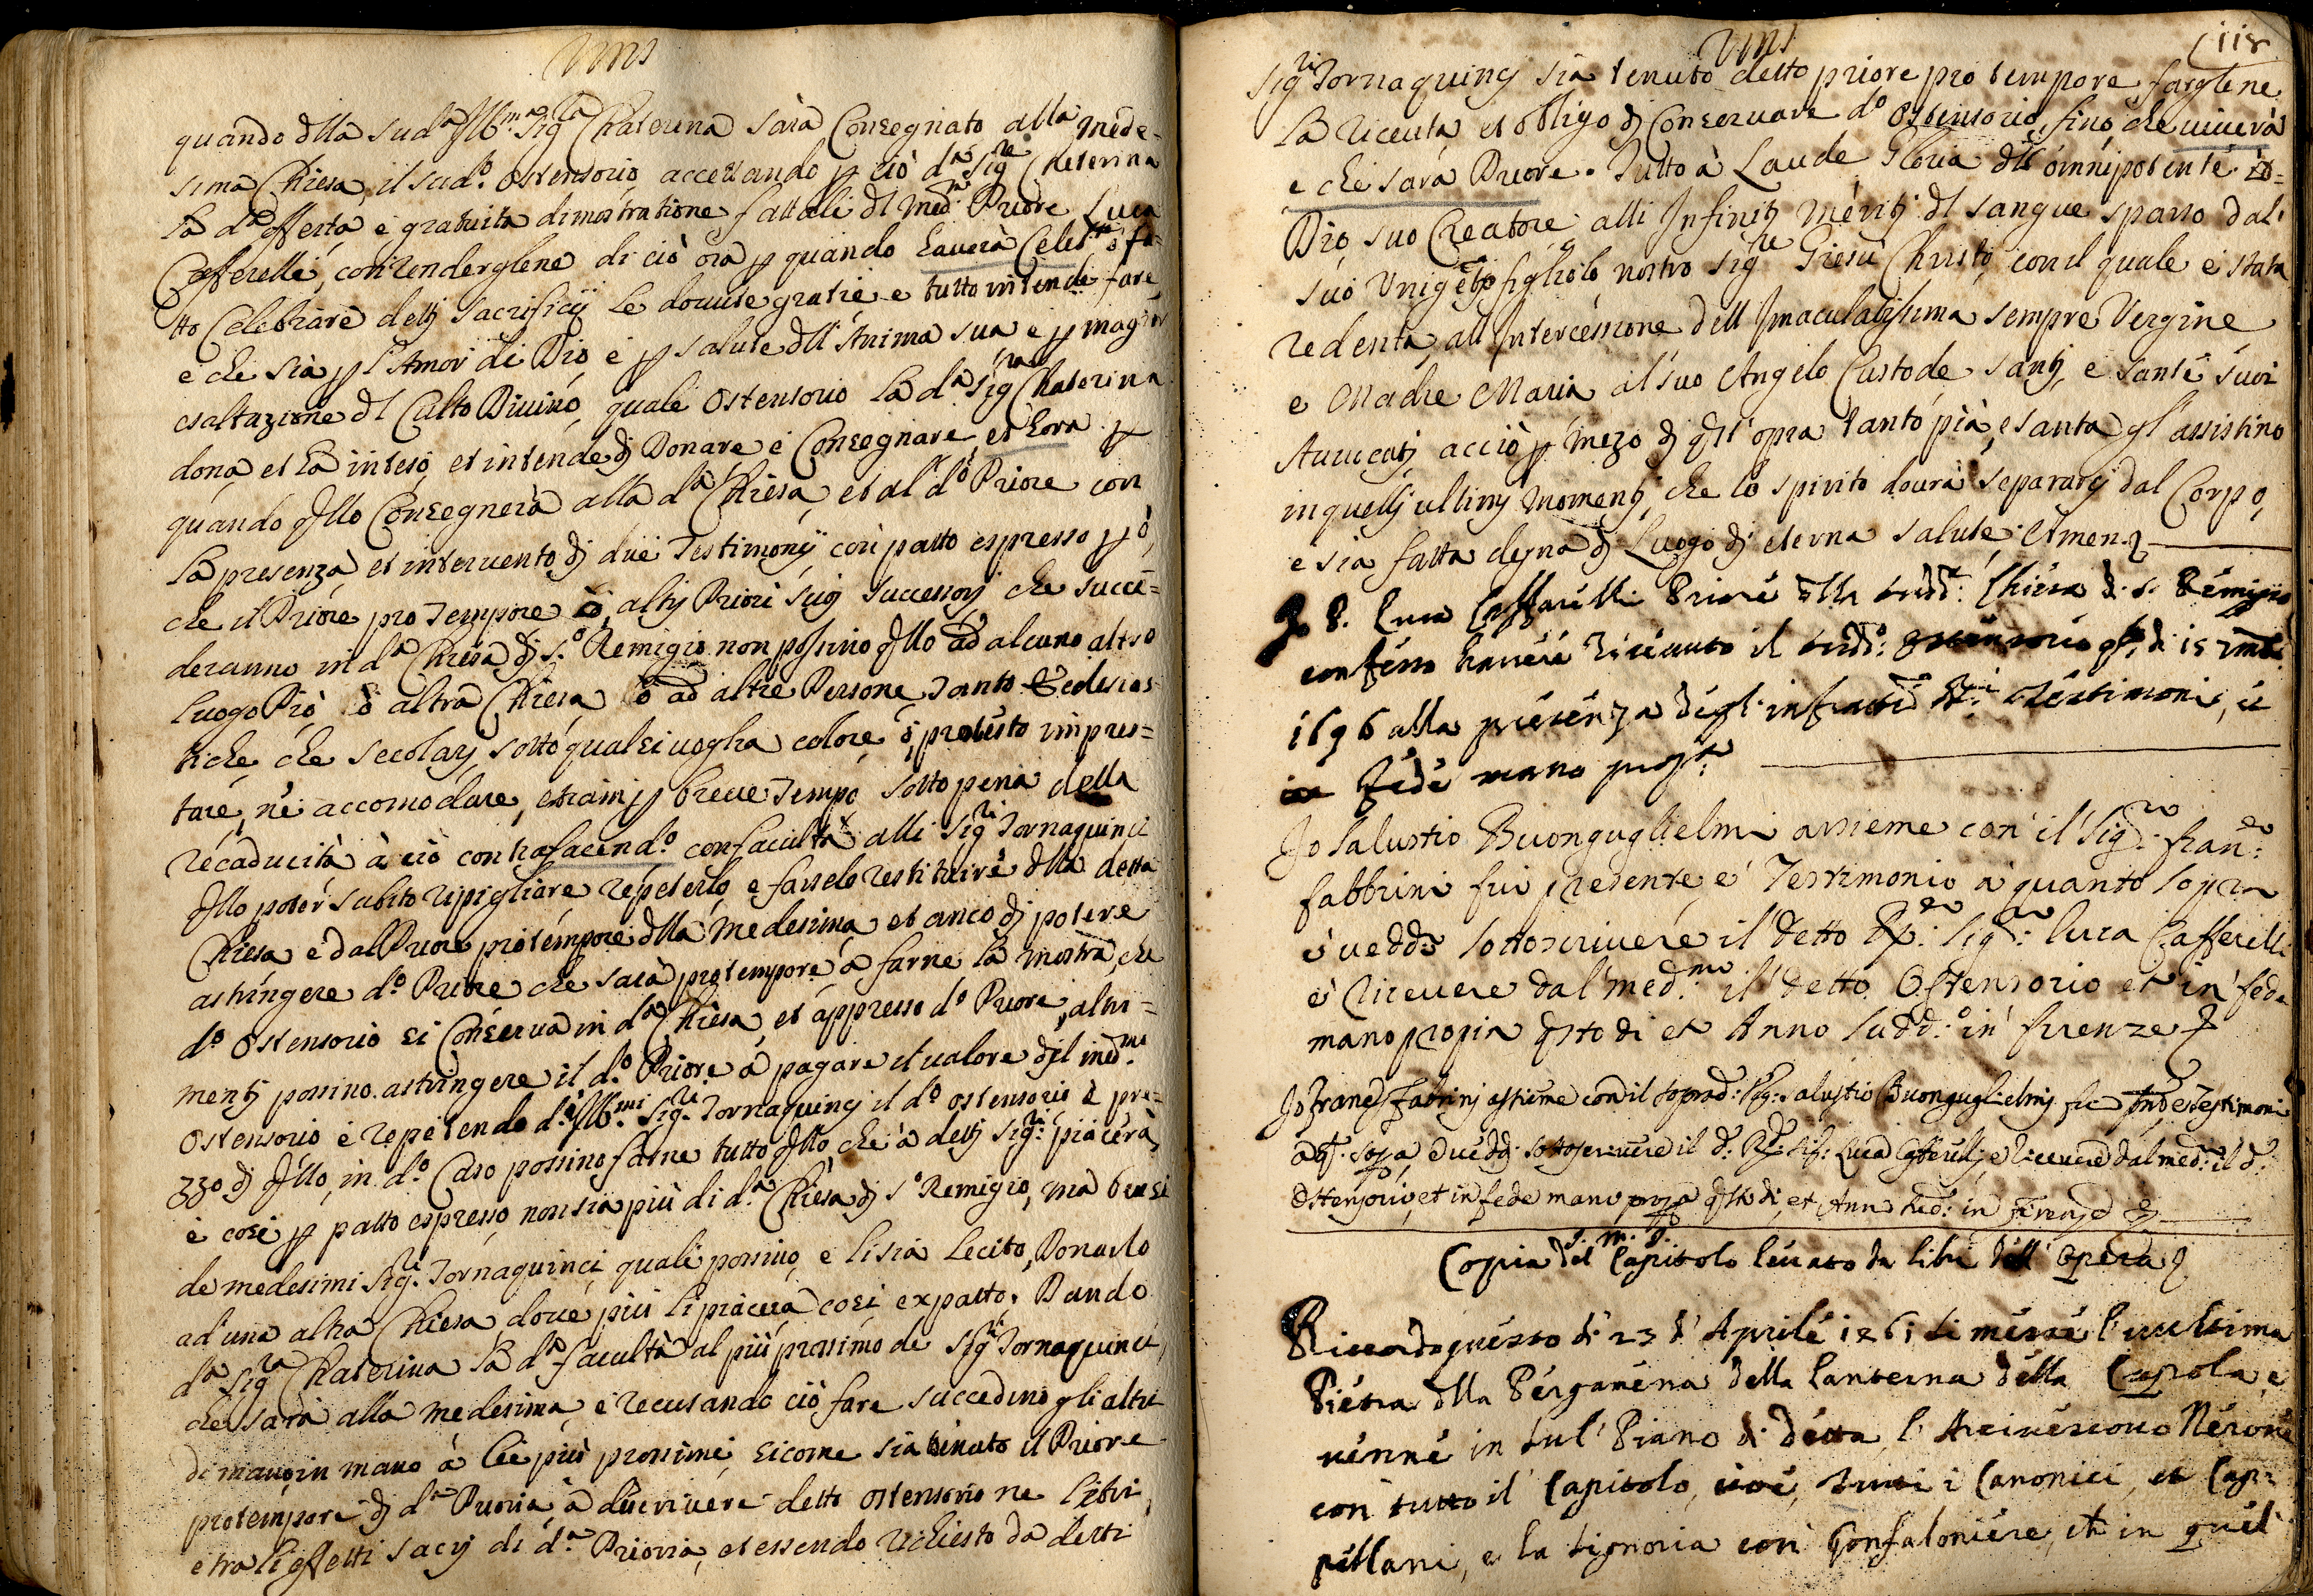 quando dlla sud.ª Ill.ma Sig.ra Chaterina sarà Consegnato alla mede-
sima Chiesa, il sud.º Ostensorio accettando p ciò d.ª Sig.re Cheterina
la d.ª offerta e gratuita dimostratione fattali dl Med.º Priore Luca
Cafferelli, con renderglene di ciò ora p quando hauerà Celeb.to ò fa-
tto Celebrare detti sacrificij le douute gratie e tutto intende fare
e che sia p l'Amor di Dio e p salute dll'Anima sua e p magior
esaltazione dl Culto Diuino, quale Ostensorio la d.ª Sig.ra Chaterina
dona et hà inteso, et intende di Donare e Consegnare et hora p
quando qllo Consegnerà alla d.ª Chiesa, et al d.º Priore con
la presenza et interuento di due Testimonij con patto espresso pò,
che il Priore pro Tempore ò altri Priori suoi successori che succe-
deranno in d.ª Chiesa di S.º Remigio non possino qllo ad alcuno altro
luogo Pio ò altra Chiesa ò ad altre Persone, tanto Eclesias-
tiche che secolari, sotto qualsiuoglia colore ò protesto impres-
tare, nè accomodare, etiam p breue Tempo sotto pena della
recaducità à ciò contrafacend.º con faculta alli Sig.ri Tornaquinci
qllo poter subito ripigliare repeterlo e farselo restituire dlla detta
Chiesa e dal Priore pro tempore dlla medesima et anco di potere
astringere d.º Priore che sarà pro tempore a farne la mostra, che
d.º Ostensorio si Conserua in d.ª Chiesa, et appresso d.º Priore, altri-
menti possino astringere il d.º Priore à pagare il ualore dl med.mo
Ostensorio e repetendo d.i Ill.mi Sig.ri Tornaquinci il d.º ostensorio è pre-
zzo di qllo, in d.º Caso possino farne tutto qllo che à detti Sig.ri piacerà,
e cosi p patto espresso non sia più di d.ª Chiesa di S.º Remigio, ma bensi
de medesimi Sig.ri Tornaquinci quali possino, e li sia lecito, Donarlo
ad una altra Chiesa doue piu li piacerà cosi ex patto. Dando
d.ª Sig.ra Chaterina la d.ª facultà al più prossimo de Sig.ri Tornaquinci,
che sarà alla medesima, e recusando ciò fare succedino gli altri
di mano in mano à lei più prossimi, sicome sia tenuto il Priore
pro tempore di d.ª Prioria à discriuere detto ostensorio ne libri,
e tra li effetti sacri di d.ª Prioria, et essendo richiesto da detti
118
Sig.ri Tornaquinci sia tenuto detto priore pro tempore farglene
la riceuta, et obligo di Conseruare d.º Ostensorio, fino che uiuerà
e che sarà Priore. Tutto à Laude Gloria dll'omnipotente
Dio, suo Creatore alli Infiniti Meriti dl sangue sparso dal
suo Unigeto figliolo nostro Sig.re Giesù Christo, con il quale è stata
redenta, all'Intercessione dell'Imaculatissima sempre Vergine
e Madre Maria al suo Angelo Custode, santi, e sante suoi
Auuocati, acciò p mezo di qst'opra tanto pia, e santa gl'assistino
in quelli ultimi momenti, che lo spirito dourà separarsi dal Corpo,
e sia fatta degna di Luogo di eterna salute. Amen.
Io P. Luca Caffarelli Priore dlla sudd.ª Chiesa di S. Remigio
confesso hauere riceuuto il sudd.º Ostensorio di 15
1696 alla presenza degl'infratti Testimoni, et
in fede mano prop.ª
Io Salustio Buonguglielmi assieme con il Sig.re Fran.co
Fabbrini fui presente, e Testimonio à quanto sopra
e ueddi sottoscriuere il detto Rp.do Sig.re Luca Cafferelli
e riceuere dal med.mo il detto Ostensorio et in fede
mano propia qsto di et Anno sudd.º in firenze
Io Franc.º Fabrini assieme con il soprad.º Sig.re Salustio Buonguglielmi fui pnte e Testimoni
a qt.º sopa e ueddi sottoscriuere il d.º Rd.º Sig.re Luca Cafferelli, e riceuere dal med.º il d.º
Ostensorio, et in fede mano propa qsto di, et Anno sud.º in Firenze
J. M. J.
Copia del Capitolo leuato da libri dell'Opera
Ricordo questo di 23 d'Aprile 1461 si messe l'ultima
Pietra dlla Pergamena della lanterna della Cupola, e
uenne in sul Piano di detta l'Arciuescouo Nerone
con tutto il Capitolo, cioè, tutti i Canonici, et Cap-
pellani, e la Signoria con Gonfaloniere, et in quel